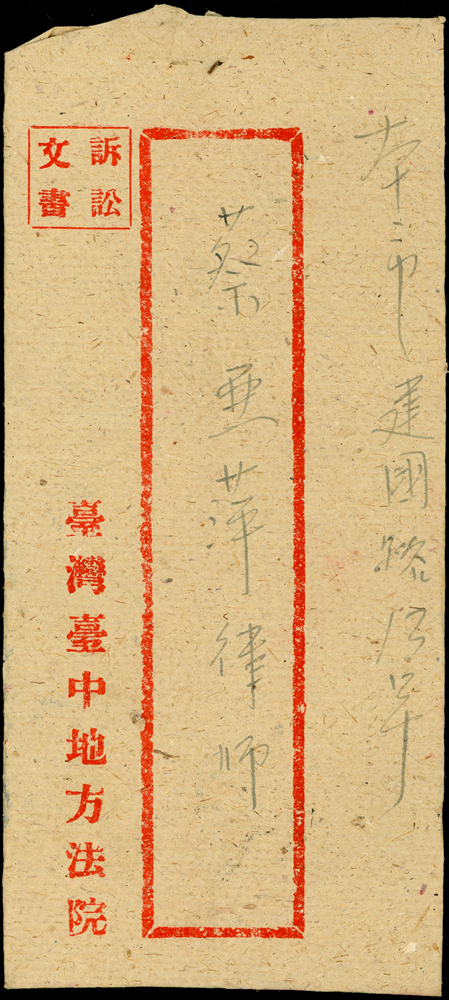 本市建國路
蔡惠萍律師
訴訟
文書
臺灣臺中地方法院